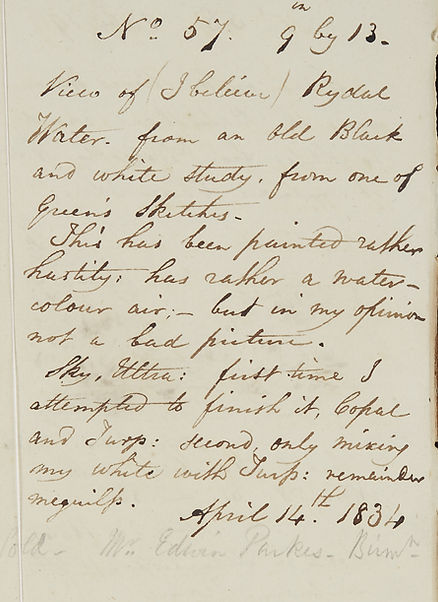 No 57. 9 in by 13.
View of (I believe) Rydal
Water. from an old Black
and white study. from one of
Green's Sketches.
This has been painted rather
hastily; has rather a water-
colour air;- but in my opinion
not a bad picture.
Sky, Ultra: first time I
attempted to finish it, Copal
and Turp: second, only mixing
my white with Turp: remainder
meguilp.
April 14th. 1834
Sold - Mr. Edwin Parkes - Birmm